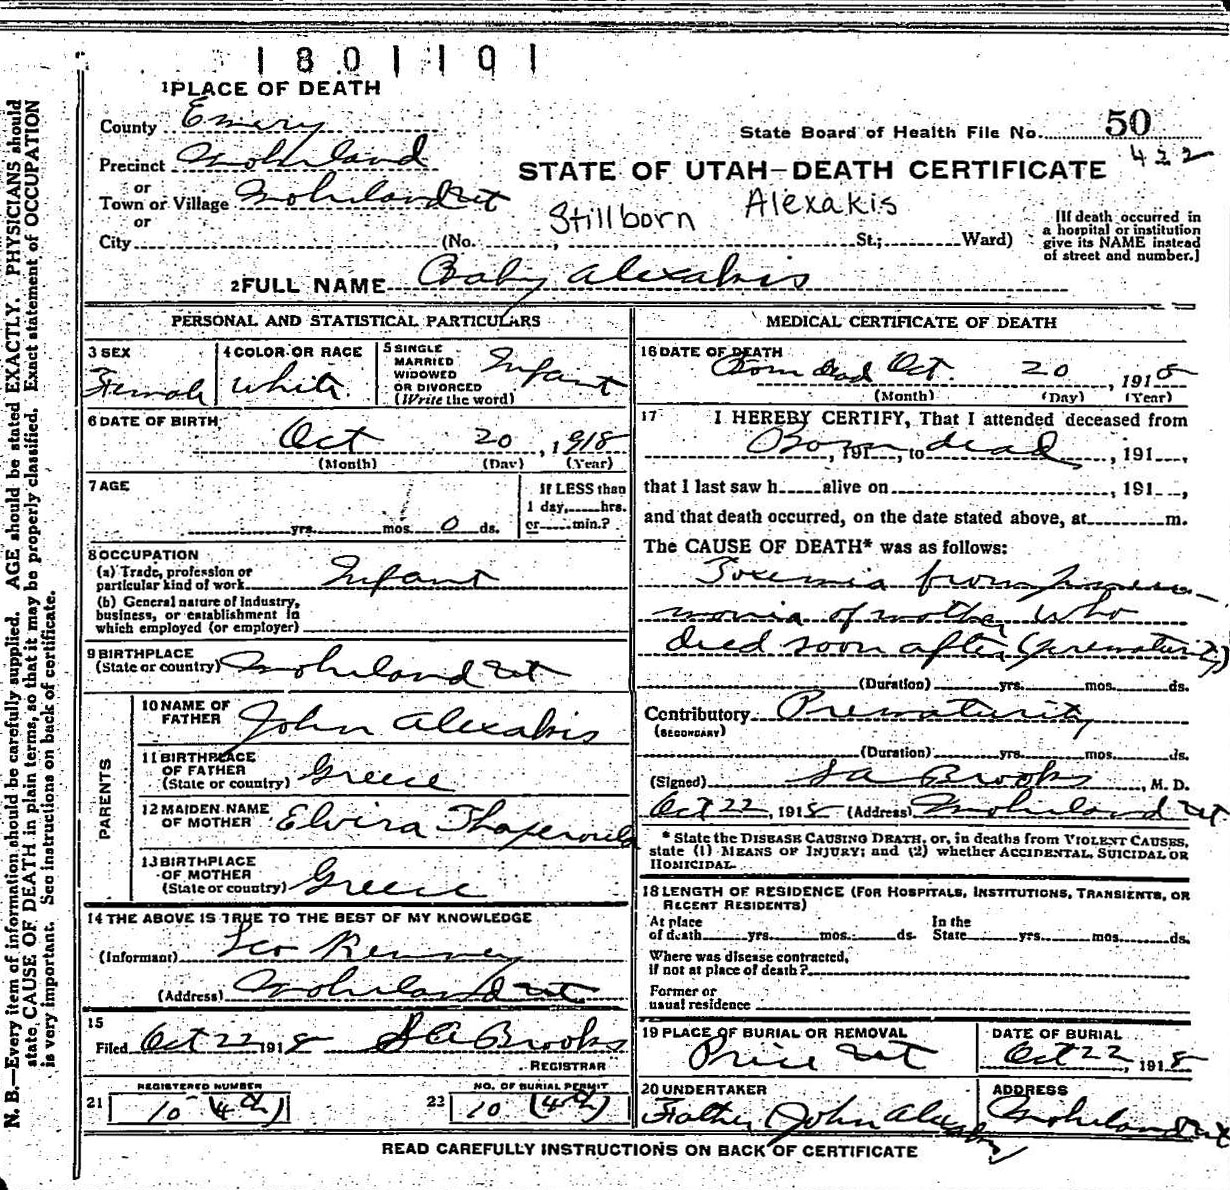 1801101
1 PLACE OF DEATH
County Emery
State Board of Health File No. 50
422
Precinct Mohrland
STATE OF UTAH—DEATH CERTIFICATE
or
Town or Village Mohrland Ut
Stillborn Alexakis
or
City (No. , St.; Ward)
[If death occurred in
a hospital or institution
give its NAME instead
of street and number.]
2 FULL NAME Baby Alexakis
PERSONAL AND STATISTICAL PARTICULARS
3 SEX
Female
4 COLOR OR RACE
White
5 SINGLE
MARRIED
WIDOWED
OR DIVORCED
(Write the word)
Infant
6 DATE OF BIRTH
Oct 20, 1918
(Month) (Day) (Year)
7 AGE
yrs. mos. 0 ds.
If LESS than
1 day, hrs.
or min.?
8 OCCUPATION
(a) Trade, profession or
particular kind of work Infant
(b) General nature of industry,
business, or establishment in
which employed (or employer)
9 BIRTHPLACE
(State or country) Mohrland Ut
PARENTS
10 NAME OF
FATHER John Alexakis
11 BIRTHPLACE
OF FATHER
(State or country) Greece
12 MAIDEN NAME
OF MOTHER Elvira
13 BIRTHPLACE
OF MOTHER
(State or country) Greece
14 THE ABOVE IS TRUE TO THE BEST OF MY KNOWLEDGE
(Informant)
(Address) Mohrland Ut
15
Filed Oct 22 1918 SA Brooks
REGISTRAR
REGISTERED NUMBER
21 10 (4th)
NO. OF BURIAL PERMIT
22 10 (4th)
MEDICAL CERTIFICATE OF DEATH
16 DATE OF DEATH
Born dead Oct. 20, 1918
(Month) (Day) (Year)
17 I HEREBY CERTIFY, That I attended deceased from
Born , 191 , to dead , 191 ,
that I last saw h alive on , 191 ,
and that death occurred, on the date stated above, at m.
The CAUSE OF DEATH* was as follows:
Toxemia from pneu-
monia of mother who
died soon after (prematurity)
(Duration) yrs. mos. ds.
Contributory Prematurity
(SECONDARY)
(Duration) yrs. mos. ds.
(Signed) SA Brooks, M. D.
Oct 22, 1918 (Address) Mohrland Ut
* State the DISEASE CAUSING DEATH, or, in deaths from VIOLENT CAUSES,
state (1) MEANS OF INJURY; and (2) whether ACCIDENTAL, SUICIDAL OR
HOMICIDAL.
18 LENGTH OF RESIDENCE (FOR HOSPITALS, INSTITUTIONS, TRANSIENTS, OR
RECENT RESIDENTS)
At place
of death yrs. mos. ds.
In the
State yrs. mos. ds.
Where was disease contracted,
if not at place of death?
Former or
usual residence
19 PLACE OF BURIAL OR REMOVAL
Price Ut
DATE OF BURIAL
Oct 22, 1918
20 UNDERTAKER
Father (John Alexakis)
ADDRESS
Mohrland Ut
READ CAREFULLY INSTRUCTIONS ON BACK OF CERTIFICATE
N. B.—Every item of information should be carefully supplied. AGE should be stated EXACTLY. PHYSICIANS should
state CAUSE OF DEATH in plain terms, so that it may be properly classified. Exact statement of OCCUPATION
is very important. See instructions on back of certificate.